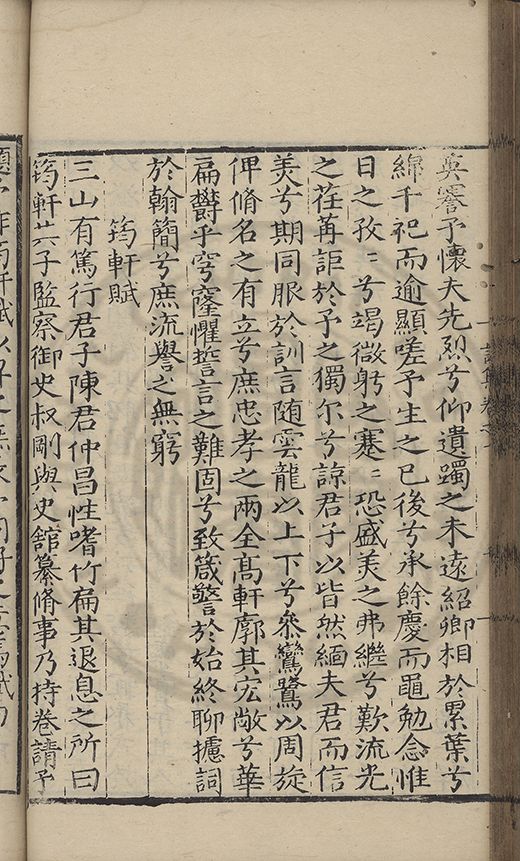 奭謇予懷夫先烈兮仰遺躅之未遠紹卿相於累葉兮
綿千祀而逾顯嗟予生之已後兮承餘慶而黽勉念惟
日之孜〻兮竭微躬之蹇〻恐盛美之弗繼兮歎流光
之荏苒詎於予之獨尔兮諒君子以皆然緬夫君而信
美兮期同服於訓言随雲龍以上下兮叅鸞鷺以周旋
俾脩名之有立兮庶忠孝之兩全高軒廓其宏敞兮華
扁欝乎穹窿懼誓言之難固兮致箴警於始終聊攄詞
於翰簡兮庶流譽之無窮
筠軒賦
三山有篤行君子陳君仲昌性嗜竹扁其退息之所曰
筠軒其子監察御史叔剛與史舘纂脩事乃持卷請予